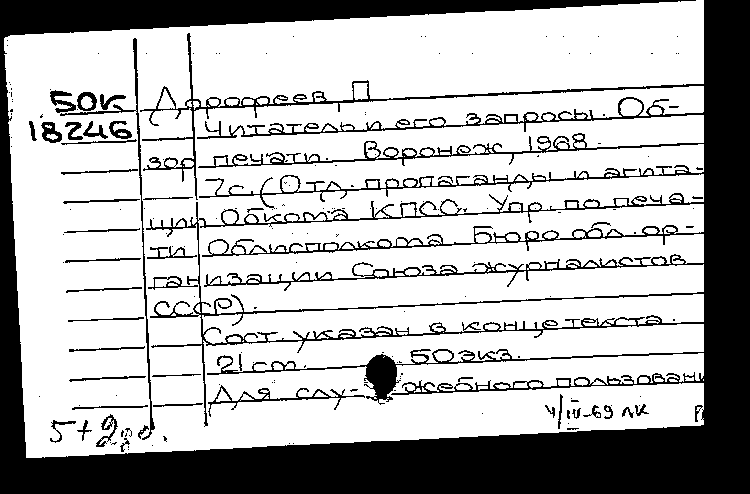 50к
18246
Дорофеев, П
Читатель и его запросы. Об-
зор печати. Воронеж, 1968.
7с. (Отд. пропаганды и агита-
ции Обкома КПСС. Упр. по печа-
ти Облисполкома. Бюро обл. ор-
ганизации Союза журналистов
СССР).
Сост. указан в конце текста.
21 cm. 50 экз.
Для слу- жебного пользовани
4/IV-69 лк
5+2